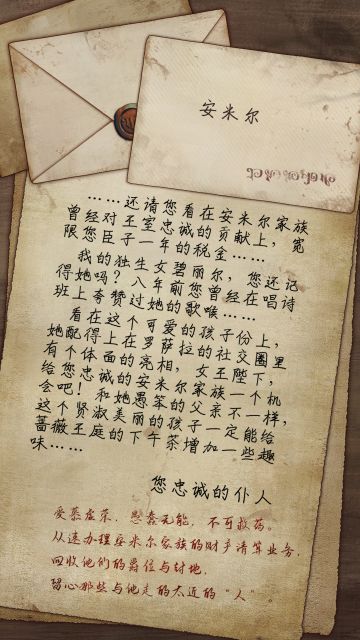 安米尔
……还请您看在安米尔家族
曾经对王室忠诚的贡献上，宽
限您臣子一年的税金……
我的独生女碧丽尔，您还记
得她吗？八年前您曾经在唱诗
班上夸赞过她的歌喉……
看在这个可爱的孩子份上，
她配得上在罗萨拉的社交圈里
有个体面的亮相，女王陛下，
给您忠诚的安米尔家族一个机
会吧！和她愚笨的父亲不一样，
这个贤淑美丽的孩子一定能给
蔷薇王庭的下午茶增加一些趣
味……
您忠诚的仆人
爱慕虚荣，愚蠢无能，不可救药。
从速办理安米尔家族的财产清算业务，
回收他们的爵位与封地，
留心那些与他走的太近的“人”。